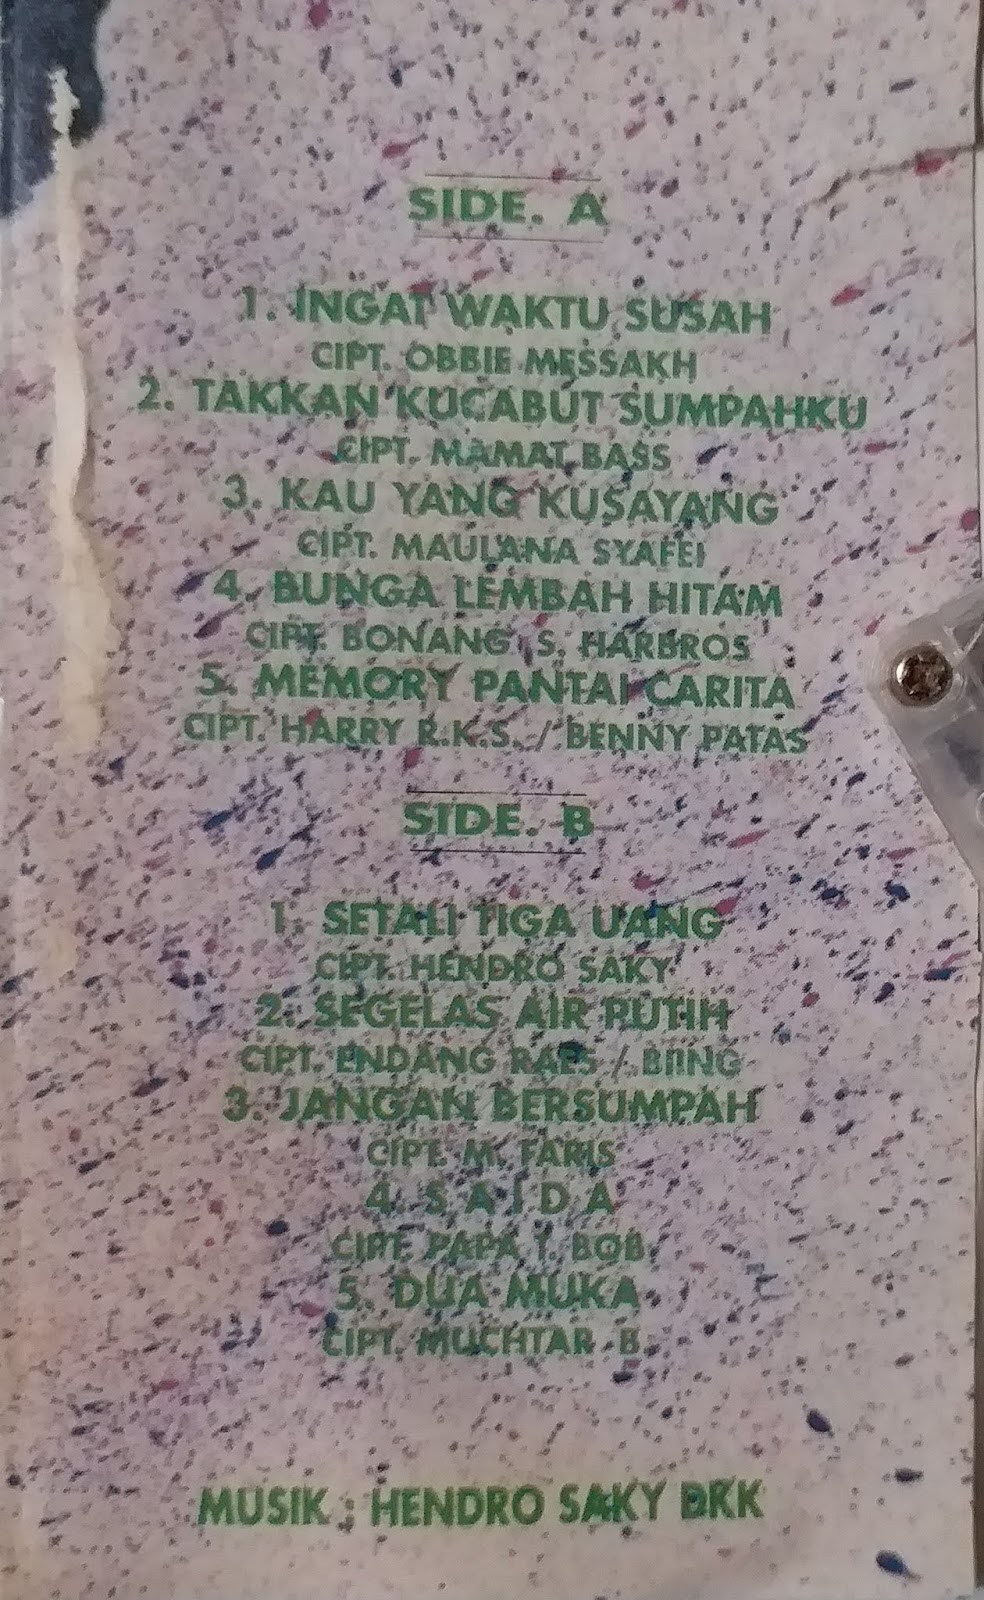 SIDE. A
1. INGAT WAKTU SUSAH
CIPT. OBBIE MESSAKH
2. TAKKAN KUCABUT SUMPAHKU
CIPT. MAMAT BASS
3. KAU YANG KUSAYANG
CIPT. MAULANA SYAFEI
4. BUNGA LEMBAH HITAM
CIPT. BONANG S. HARBROS
5. MEMORY PANTAI CARITA
CIPT. HARRY R.K.S. / BENNY PATAS
SIDE. B
1. SETALI TIGA UANG
CIPT. HENDRO SAKY
2. SEGELAS AIR PUTIH
CIPT. ENDANG RAES / BIING
3. JANGAN BERSUMPAH
CIPT. M. FARIS
4. S A I D A
CIPT. PAPA T. BOB
5. DUA MUKA
CIPT. MUCHTAR B.
MUSIK : HENDRO SAKY DKK